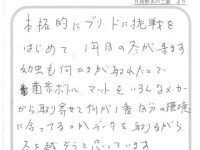 月夜野きのこ園 より
本格的にブリードに挑戦を
はじめて、1年目の冬が来ます
幼虫も何頭か取れたので
菌糸ボトル、マットをいろんなメーカー
から取り寄せて何が1番自分の環境
に合ってるのかデータを取りながら
冬を越そうと思っています